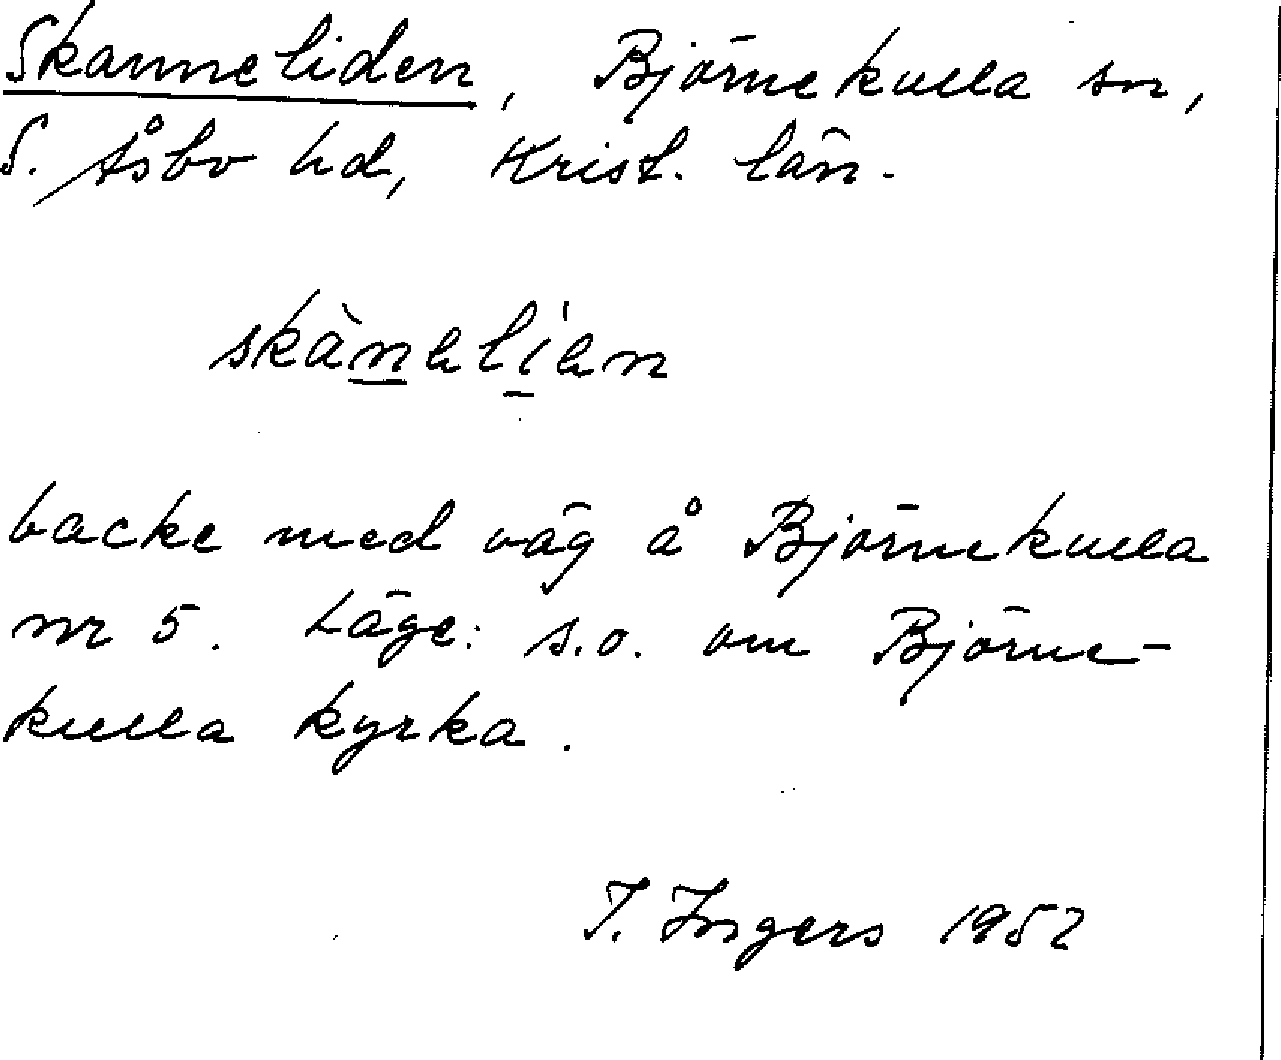 Skanneliden, Björnekulla sn,
S. Åsbo hd, Krist. län.
skànəlíən
backe med väg å Björnekulla
nr 5. Läge: s.o. om Björne-
kulla kyrka.
I. Ingers 1952